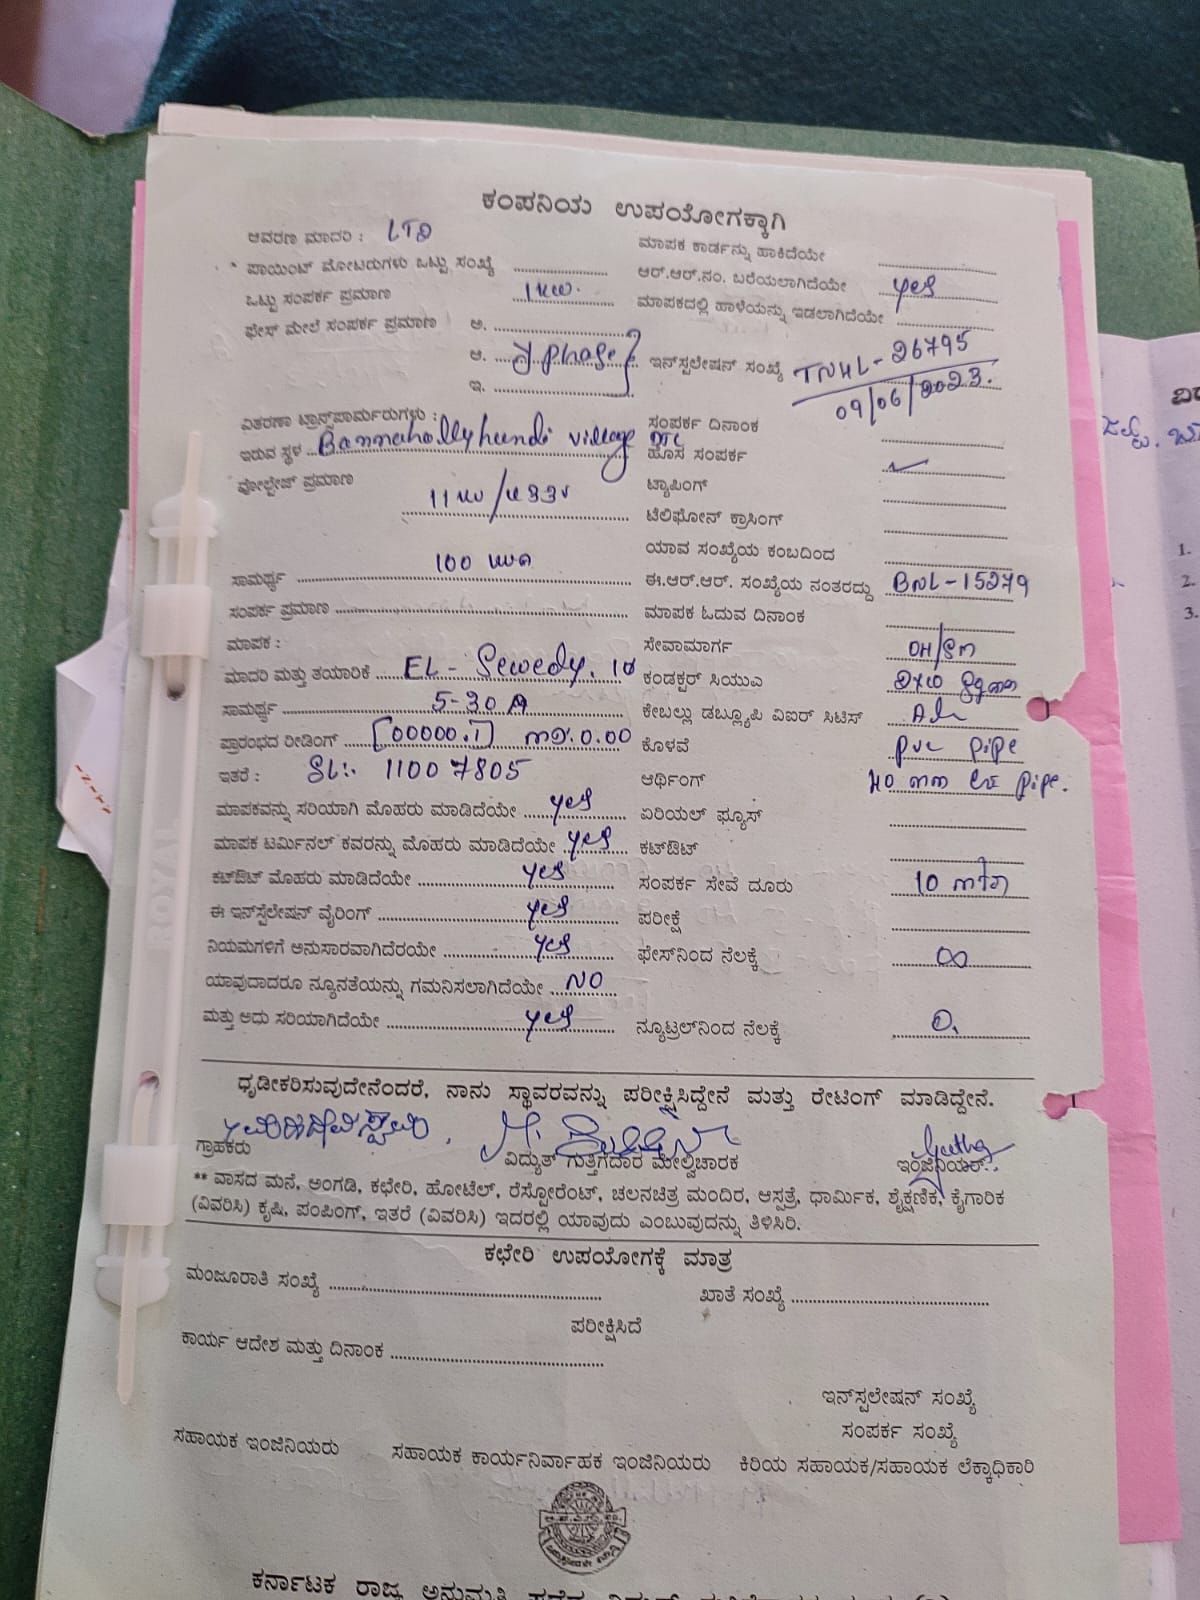 ಕಂಪನಿಯ ಉಪಯೋಗಕ್ಕಾಗಿ
ಆವರಣ ಮಾದರಿ : LTD
ಮಾಪಕ ಕಾರ್ಡನ್ನು ಹಾಕಿದೆಯೇ
* ಪಾಯಿಂಟ್ ಮೋಟರುಗಳು ಒಟ್ಟು ಸಂಖ್ಯೆ
ಆರ್.ಆರ್.ನಂ. ಬರೆಯಲಾಗಿದೆಯೇ yes
ಒಟ್ಟು ಸಂಪರ್ಕ ಪ್ರಮಾಣ 1KW.
ಮಾಪಕದಲ್ಲಿ ಹಾಳೆಯನ್ನು ಇಡಲಾಗಿದೆಯೇ
ಫೇಸ್ ಮೇಲೆ ಸಂಪರ್ಕ ಪ್ರಮಾಣ ಅ.
ಆ. phase
ಇನ್‌ಸ್ಪಲೇಷನ್ ಸಂಖ್ಯೆ TNHL-26795
09/06/2023.
ಇ.
ವಿತರಣಾ ಟ್ರಾನ್ಸ್‌ಫಾರ್ಮರುಗಳು :
ಸಂಪರ್ಕ ದಿನಾಂಕ
ಇರುವ ಸ್ಥಳ Bannahallyhundi village
ಹೊಸ ಸಂಪರ್ಕ
ವೋಲ್ಟೇಜ್ ಪ್ರಮಾಣ 11KV/433V
ಟ್ಯಾಪಿಂಗ್
ಟೆಲಿಫೋನ್ ಕ್ರಾಸಿಂಗ್
ಯಾವ ಸಂಖ್ಯೆಯ ಕಂಬದಿಂದ
ಸಾಮರ್ಥ್ಯ 100
ಈ.ಆರ್.ಆರ್. ಸಂಖ್ಯೆಯ ನಂತರದ್ದು BNL-15279
ಸಂಪರ್ಕ ಪ್ರಮಾಣ
ಮಾಪಕ ಓದುವ ದಿನಾಂಕ
ಮಾಪಕ :
ಸೇವಾಮಾರ್ಗ OH/
ಮಾದರಿ ಮತ್ತು ತಯಾರಿಕೆ EL - Sewedy.
ಕಂಡಕ್ಟರ್ ಸಿಯುಎ
ಸಾಮರ್ಥ್ಯ 5-30 A
ಕೇಬಲ್ಲು ಡಬ್ಲ್ಯೂಪಿ ವಿಐರ್ ಸಿಟಿಸ್
ಪ್ರಾರಂಭದ ರೀಡಿಂಗ್ [00000.1] 0.00
ಕೊಳವೆ pvc pipe
ಇತರೆ : SL:- 11007805
ಆರ್ಥಿಂಗ್ pipe.
ಮಾಪಕವನ್ನು ಸರಿಯಾಗಿ ಮೊಹರು ಮಾಡಿದೆಯೇ yes
ಏರಿಯಲ್ ಫ್ಯೂಸ್
ಮಾಪಕ ಟರ್ಮಿನಲ್ ಕವರನ್ನು ಮೊಹರು ಮಾಡಿದೆಯೇ yes
ಕಟ್‌ಔಟ್
ಕಟ್‌ಔಟ್ ಮೊಹರು ಮಾಡಿದೆಯೇ yes
ಸಂಪರ್ಕ ಸೇವೆ ದೂರು 10
ಈ ಇನ್‌ಸ್ಟೆಲೇಷನ್ ವೈರಿಂಗ್ yes
ಪರೀಕ್ಷೆ
ನಿಯಮಗಳಿಗೆ ಅನುಸಾರವಾಗಿದೆರಯೇ yes
ಫೇಸ್‌ನಿಂದ ನೆಲಕ್ಕೆ ∞
ಯಾವುದಾದರೂ ನ್ಯೂನತೆಯನ್ನು ಗಮನಿಸಲಾಗಿದೆಯೇ NO
ಮತ್ತು ಅದು ಸರಿಯಾಗಿದೆಯೇ yes
ನ್ಯೂಟ್ರಲ್‌ನಿಂದ ನೆಲಕ್ಕೆ 0.
ಧೃಡೀಕರಿಸುವುದೇನೆಂದರೆ, ನಾನು ಸ್ಥಾವರವನ್ನು ಪರೀಕ್ಷಿಸಿದ್ದೇನೆ ಮತ್ತು ರೇಟಿಂಗ್ ಮಾಡಿದ್ದೇನೆ.
Geetha
ಗ್ರಾಹಕರು ವಿದ್ಯುತ್ ಗುತ್ತಿಗೆದಾರ ಮೇಲ್ವಿಚಾರಕ ಇಂಜಿನಿಯರ್.
** ವಾಸದ ಮನೆ, ಅಂಗಡಿ, ಕಛೇರಿ, ಹೋಟೆಲ್, ರೆಸ್ಟೋರೆಂಟ್, ಚಲನಚಿತ್ರ ಮಂದಿರ, ಆಸ್ಪತ್ರೆ, ಧಾರ್ಮಿಕ, ಶೈಕ್ಷಣಿಕ, ಕೈಗಾರಿಕ
(ವಿವರಿಸಿ) ಕೃಷಿ, ಪಂಪಿಂಗ್, ಇತರೆ (ವಿವರಿಸಿ) ಇದರಲ್ಲಿ ಯಾವುದು ಎಂಬುವುದನ್ನು ತಿಳಿಸಿರಿ.
ಕಛೇರಿ ಉಪಯೋಗಕ್ಕೆ ಮಾತ್ರ
ಮಂಜೂರಾತಿ ಸಂಖ್ಯೆ
ಖಾತೆ ಸಂಖ್ಯೆ
ಪರೀಕ್ಷಿಸಿದೆ
ಕಾರ್ಯ ಆದೇಶ ಮತ್ತು ದಿನಾಂಕ
ಇನ್‌ಸ್ಪಲೇಷನ್ ಸಂಖ್ಯೆ
ಸಂಪರ್ಕ ಸಂಖ್ಯೆ
ಸಹಾಯಕ ಇಂಜಿನಿಯರು ಸಹಾಯಕ ಕಾರ್ಯನಿರ್ವಾಹಕ ಇಂಜಿನಿಯರು ಕಿರಿಯ ಸಹಾಯಕ/ಸಹಾಯಕ ಲೆಕ್ಕಾಧಿಕಾರಿ
ಕರ್ನಾಟಕ ರಾಜ್ಯ ಅನುಮತಿ ಪಡೆದ
ROYAL
1.
2.
3.